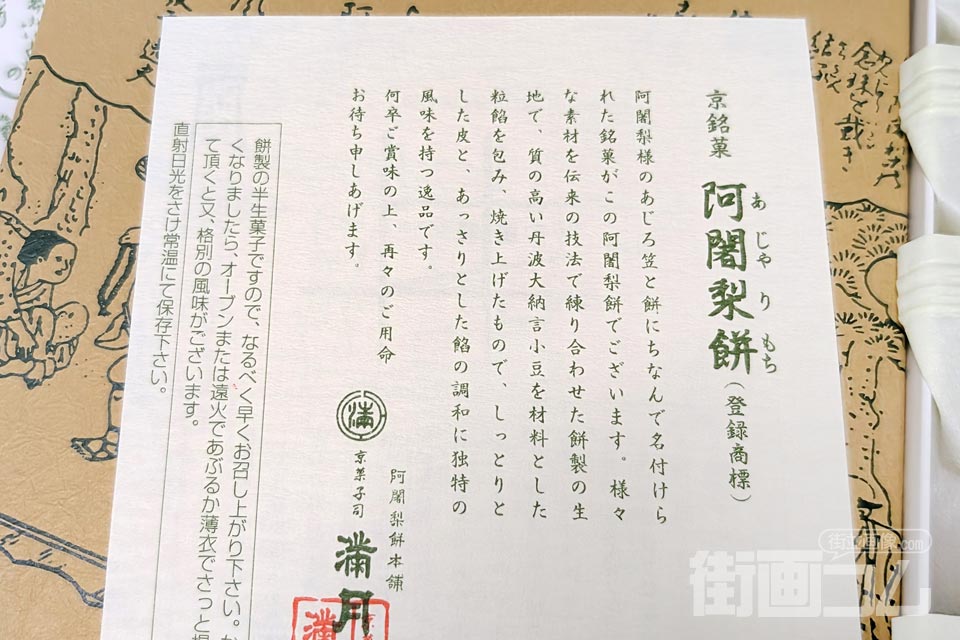 京銘菓 阿闍梨餅(登録商標)
あじゃりもち
阿闍梨様のあじろ笠と餅にちなんで名付けら
れた銘菓がこの阿闍梨餅でございます。様々
な素材を伝来の技法で練り合わせた餅製の生
地で、質の高い丹波大納言小豆を材料とした
粒餡を包み、焼き上げたもので、しっとりと
した皮と、あっさりとした餡の調和に独特の
風味を持つ逸品です。
何卒ご賞味の上、再々のご用命
お待ち申しあげます。
阿闍梨餅本舗
満
京菓子司 満月
満
餅製の半生菓子ですので、なるべく早くお召し上がり下さい。
くなりましたら、オーブンまたは遠火であぶるか薄衣でさっと
て頂くと又、格別の風味がございます。
直射日光をさけ常温にて保存下さい。
街画コム
街画像.com